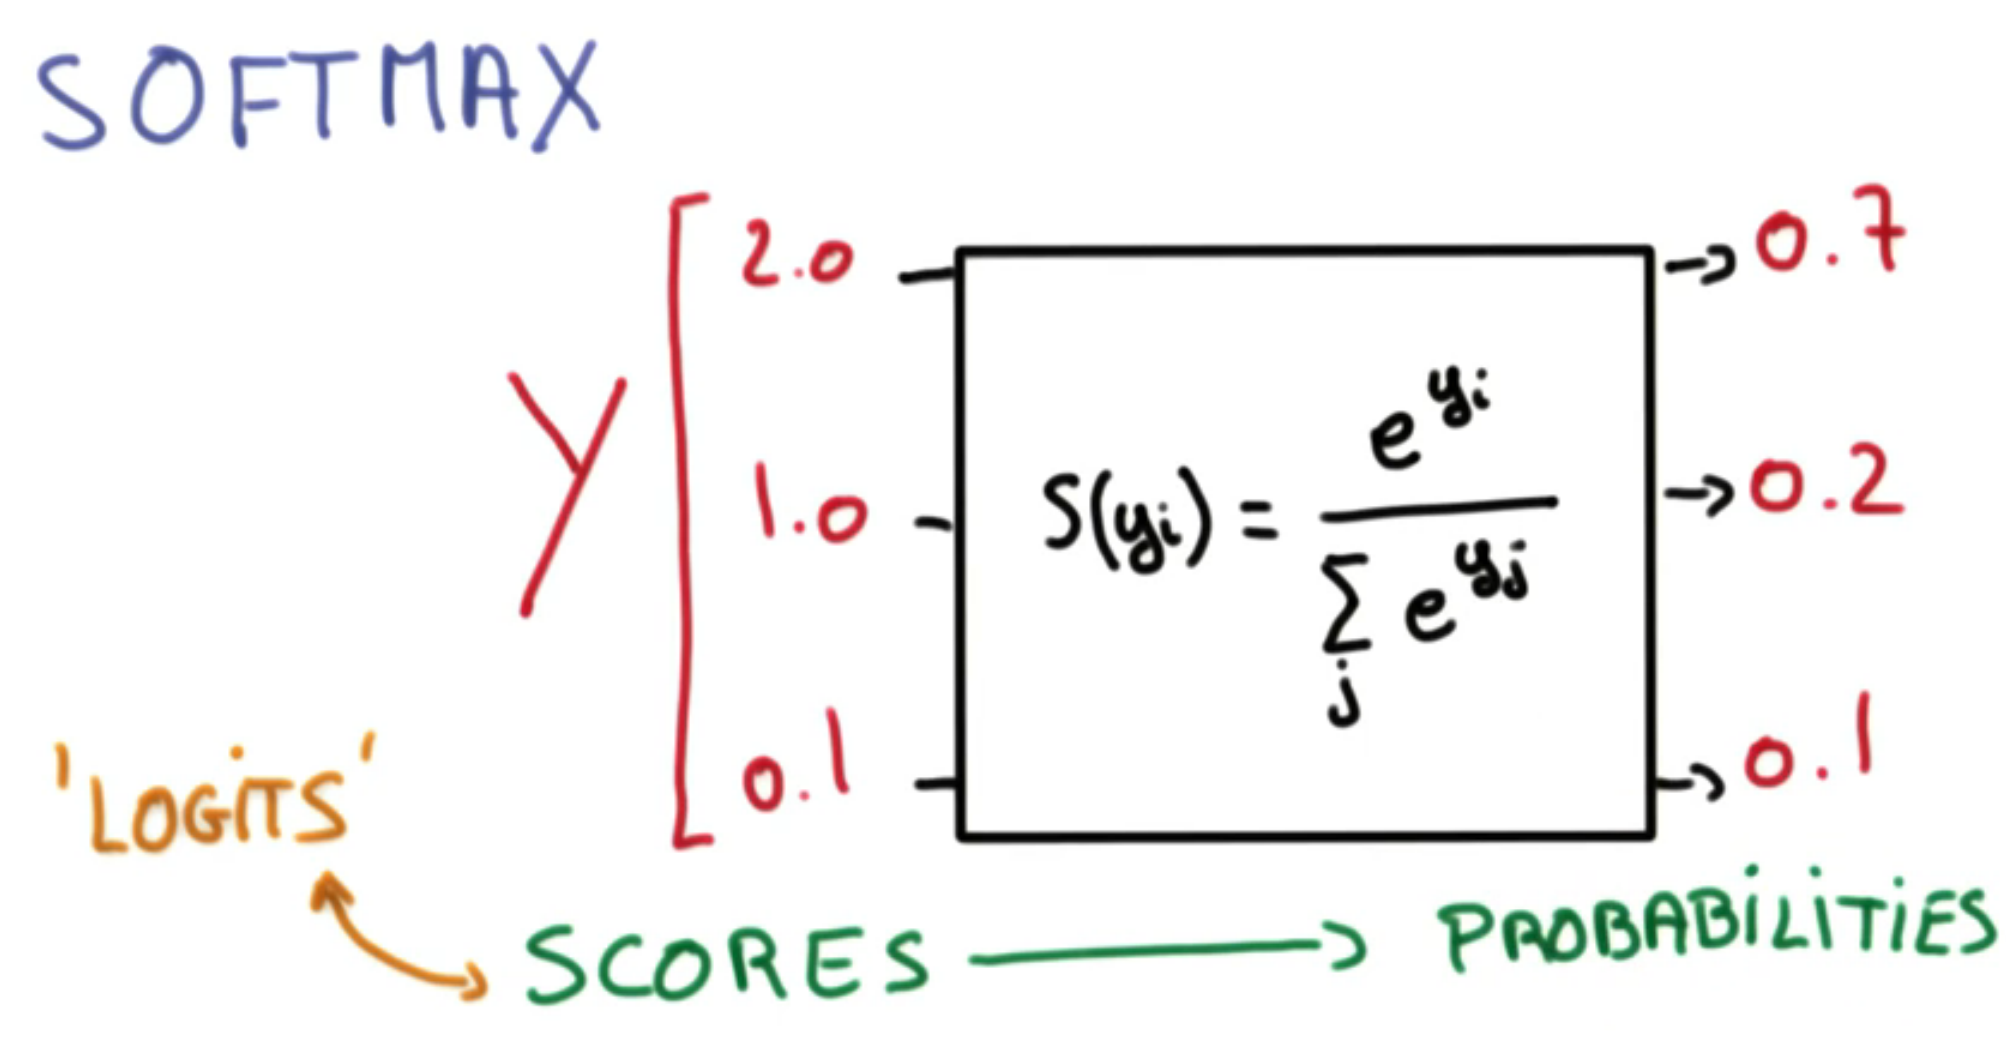 SOFTMAX
Y
2.0
1.0
0.1
S(yi) = e^yi / Σj e^yj
0.7
0.2
0.1
'LOGiTS'
SCORES → PROBABiLiTiES